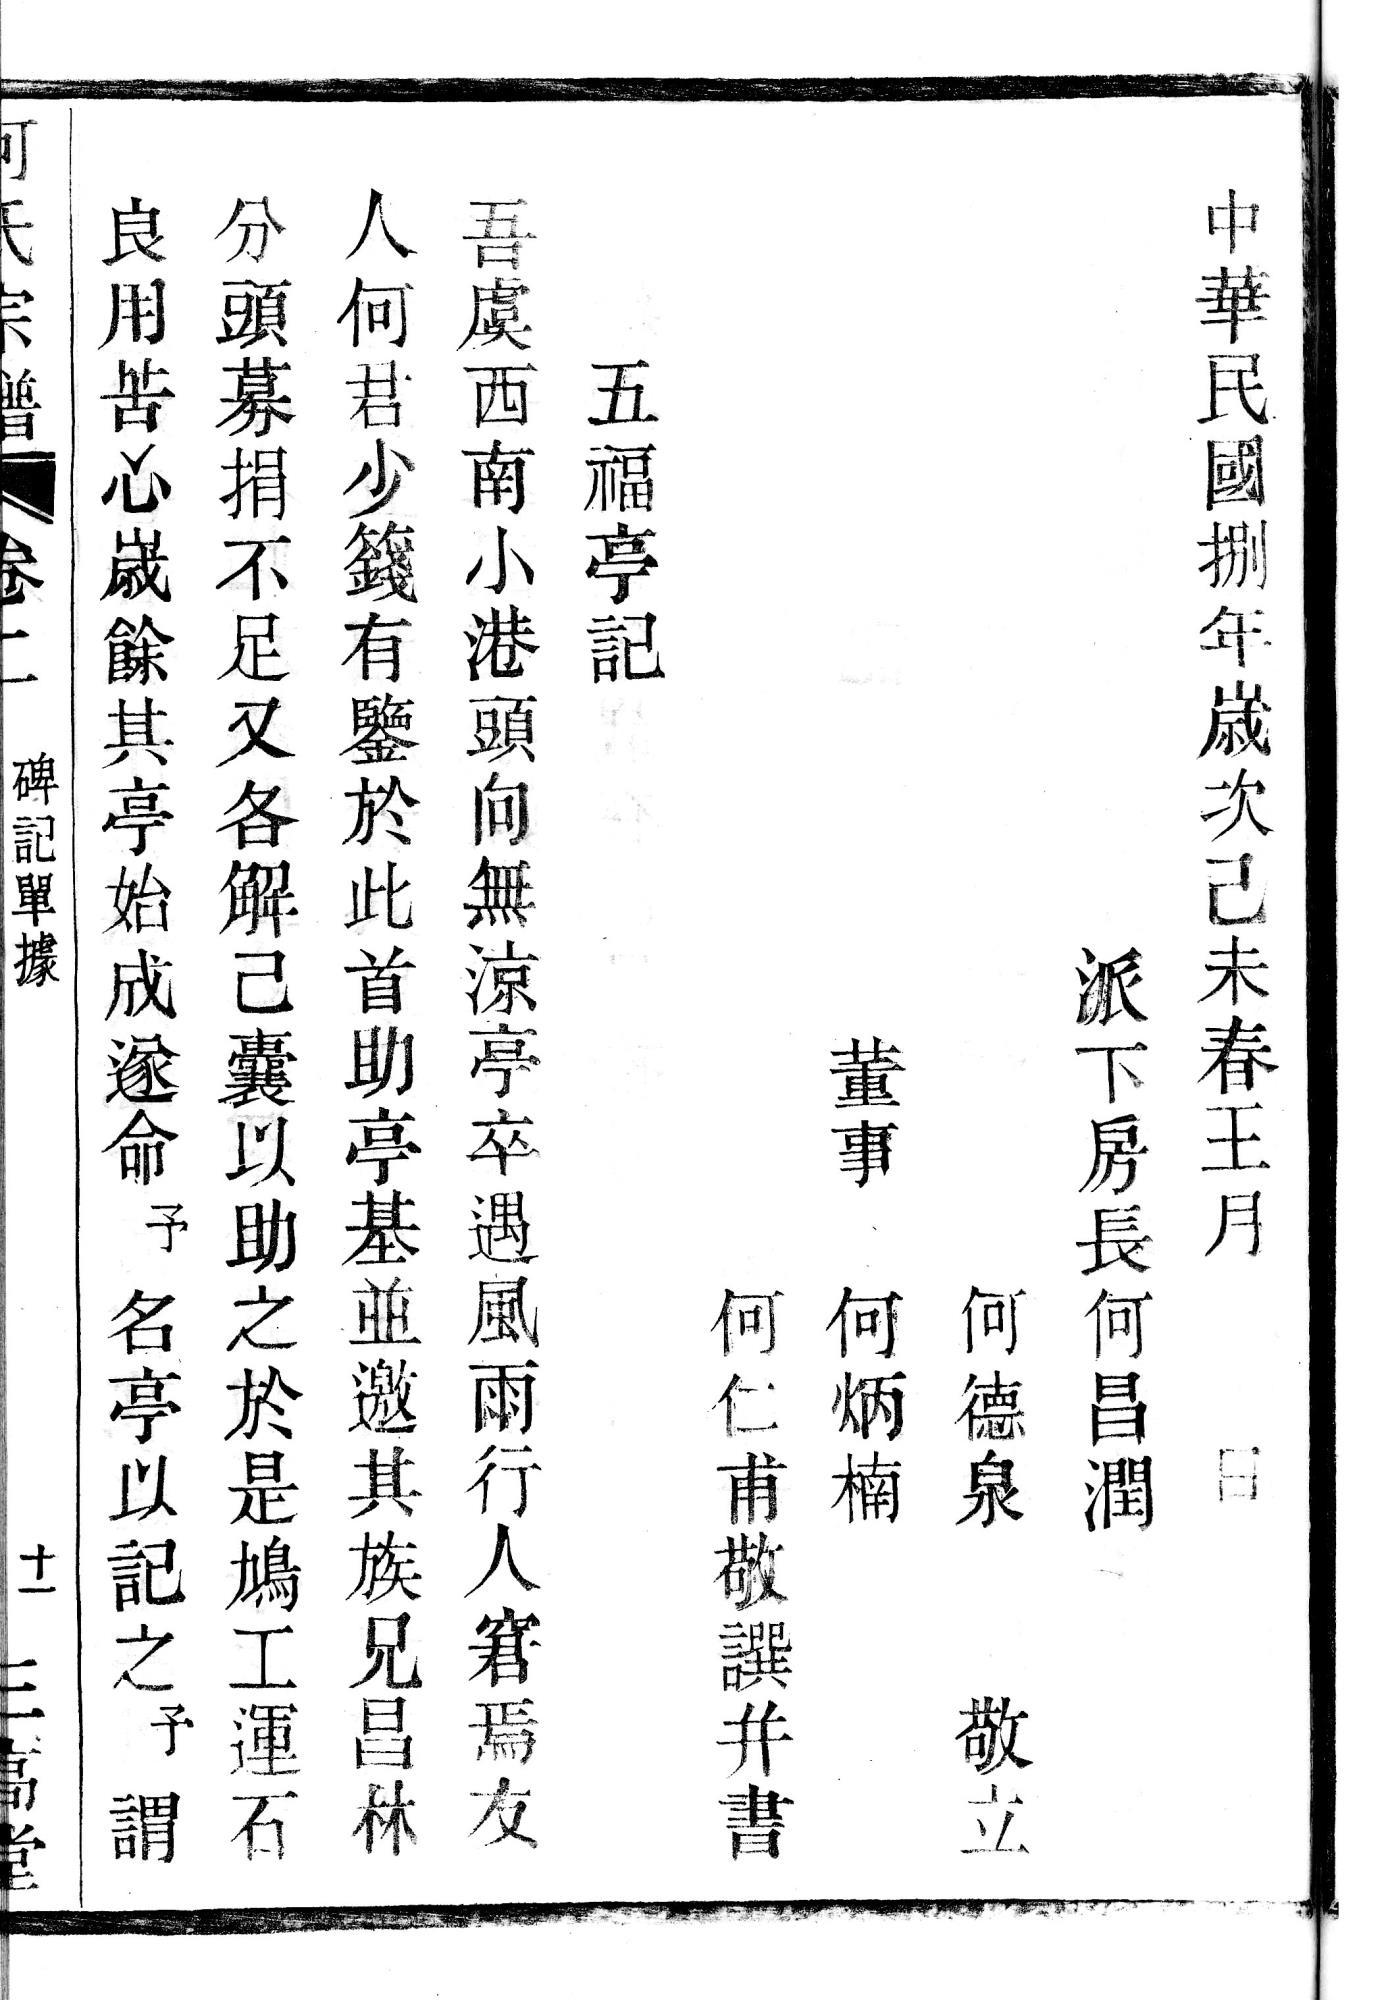 中華民國捌年歲次己未春王月　日
派下房長何昌潤
何德泉　敬立
董事　何炳楠
何仁甫敬譔幷書
五福亭記
吾虞西南小港頭向無涼亭卒遇風雨行人窘焉友
人何君少籛有鑒於此首助亭基並邀其族兄昌林
分頭募捐不足又各解己囊以助之於是鳩工運石
良用苦心歲餘其亭始成遂命予名亭以記之予謂
何氏宗譜　卷二　碑記單據　十一　三高堂